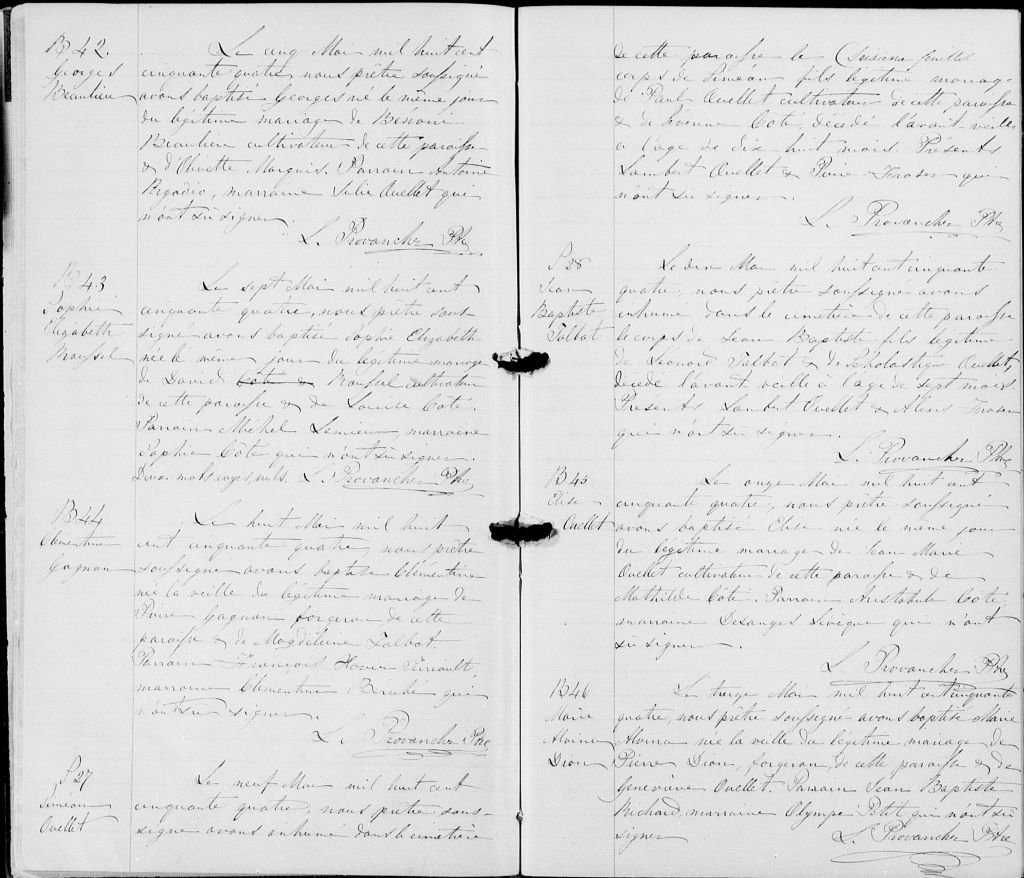 B 42.
Georges
Beaulieu
Le cinq Mai mil huit cent
cinquante quatre, nous prêtre soussigné
avons baptisé Georges né le même jour
du légitime mariage de Benoni
Beaulieu cultivateur de cette paroisse
& d'Olivette Marquis. Parrain Antoine
marraine Julie Ouellet qui
n'ont su signer.
L. Provancher Ptre
B 43
Sophie
Elizabeth
Roussel
Le sept Mai mil huit cent
cinquante quatre, nous prêtre sous-
signé avons baptisé Sophie Elizabeth
née le même jour du légitime mariage
de David Côté & Roussel cultivateur
de cette paroisse & de Louise Côté.
Parrain Michel Lemieux, marraine
Sophie Côté qui n'ont su signer.
Deux mots rayés nuls. L. Provancher Ptre
B 44
Clementine
Gagnon
Le huit Mai mil huit
cent cinquante quatre, nous prêtre
soussigné avons baptisé Clémentine
née la veille du légitime mariage de
Pierre Gagnon forgeron de cette
paroisse & de Magdeleine Talbot.
Parrain François Xavier
marraine Clementine Bérubé qui
n'ont su signer.
L. Provancher Ptre
S 27
Simeon
Ouellet
Le neuf Mai mil huit cent
cinquante quatre, nous prêtre sous-
signé avons inhumé dans le cimetière
de cette paroisse le
corps de Simeon fils légitime mariag-
de Paul Ouellet cultivateur de cette paroisse
& de Côté, décédé l'avant-veille
à l'age de dix-huit mois. Présents
Lambert Ouellet & Pierre Fraser qui
n'ont su signer.
L. Provancher Ptre
S 28
Jean
Baptiste
Talbot
Le dix Mai mil huit cent cinquante
quatre, nous prêtre soussigné avons
inhumé dans le cimetière de cette paroisse
le corps de Jean Baptiste fils légitime
de Léonard Talbot & de Scholastique Ouellet,
décédé l'avant veille à l'age de sept mois.
Présents Lambert Ouellet & Alexis Fraser
qui n'ont su signer.
L. Provancher Ptre
B 45
Elise
Ouellet
Le onze Mai mil huit cent
cinquante quatre, nous prêtre soussigné
avons baptisé Elise née le même jour
du légitime mariage de Jean Marie
Ouellet cultivateur de cette paroisse & de
Mathilde Côté. Parrain Aristobule Côté,
marraine Desanges Levêque qui n'ont
su signer.
L. Provancher Ptre
B 46
Marie
Alvina
Dion
Le treize Mai mil huit cent cinquante
quatre, nous prêtre soussigné avons baptisé Marie
Alvina née la veille du légitime mariage de
Pierre Dion, forgeron, de cette paroisse & de
Geneviève Ouellet. Parrain Jean Baptiste
Michaud, marraine Olympe Petit qui n'ont su
signer
L. Provancher Ptre